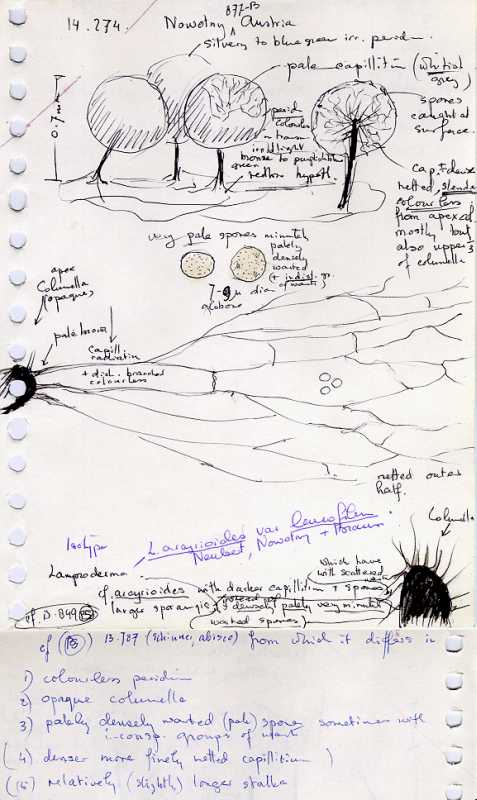 877-B
14.274. Nowotny Austria
Silvery to blue green irr. peridium.
pale capillitium (whitish
grey)
0.7mm
perid
colourless
in trans
irrid light
bronze to purplish
green
hypoth.
spores
caught at
surface.
cap. + dense
netted, slender
colourless
from apex of col
mostly but
also upper 1/3
of columella
very pale spores minutely
palely
densely
warted
(+ indist. gr.
of warts)
7-9 µ dia
globose
apex
Columella
(opaque)
pale brown
capill.
radiating
+ dich. branched
colourless
netted outer
half.
Columella
Isotype L. arcyrioides var leucofilum
Neubert, Nowotny +
Lamproderma
cf arcyrioides with darker capillitium + spores
which have
with scattered
larger sporangia
densely palely very minutely
warted spores)
cf. D. 849
cf (B) 13.787 (Schinner, Abisco) from which it differs in
1) colourless peridium
2) opaque columella
3) palely densely warted (pale) spores sometimes with
incosp. groups of warts
(4) denser more finely netted capillitium )
relatively (slightly) longer stalks